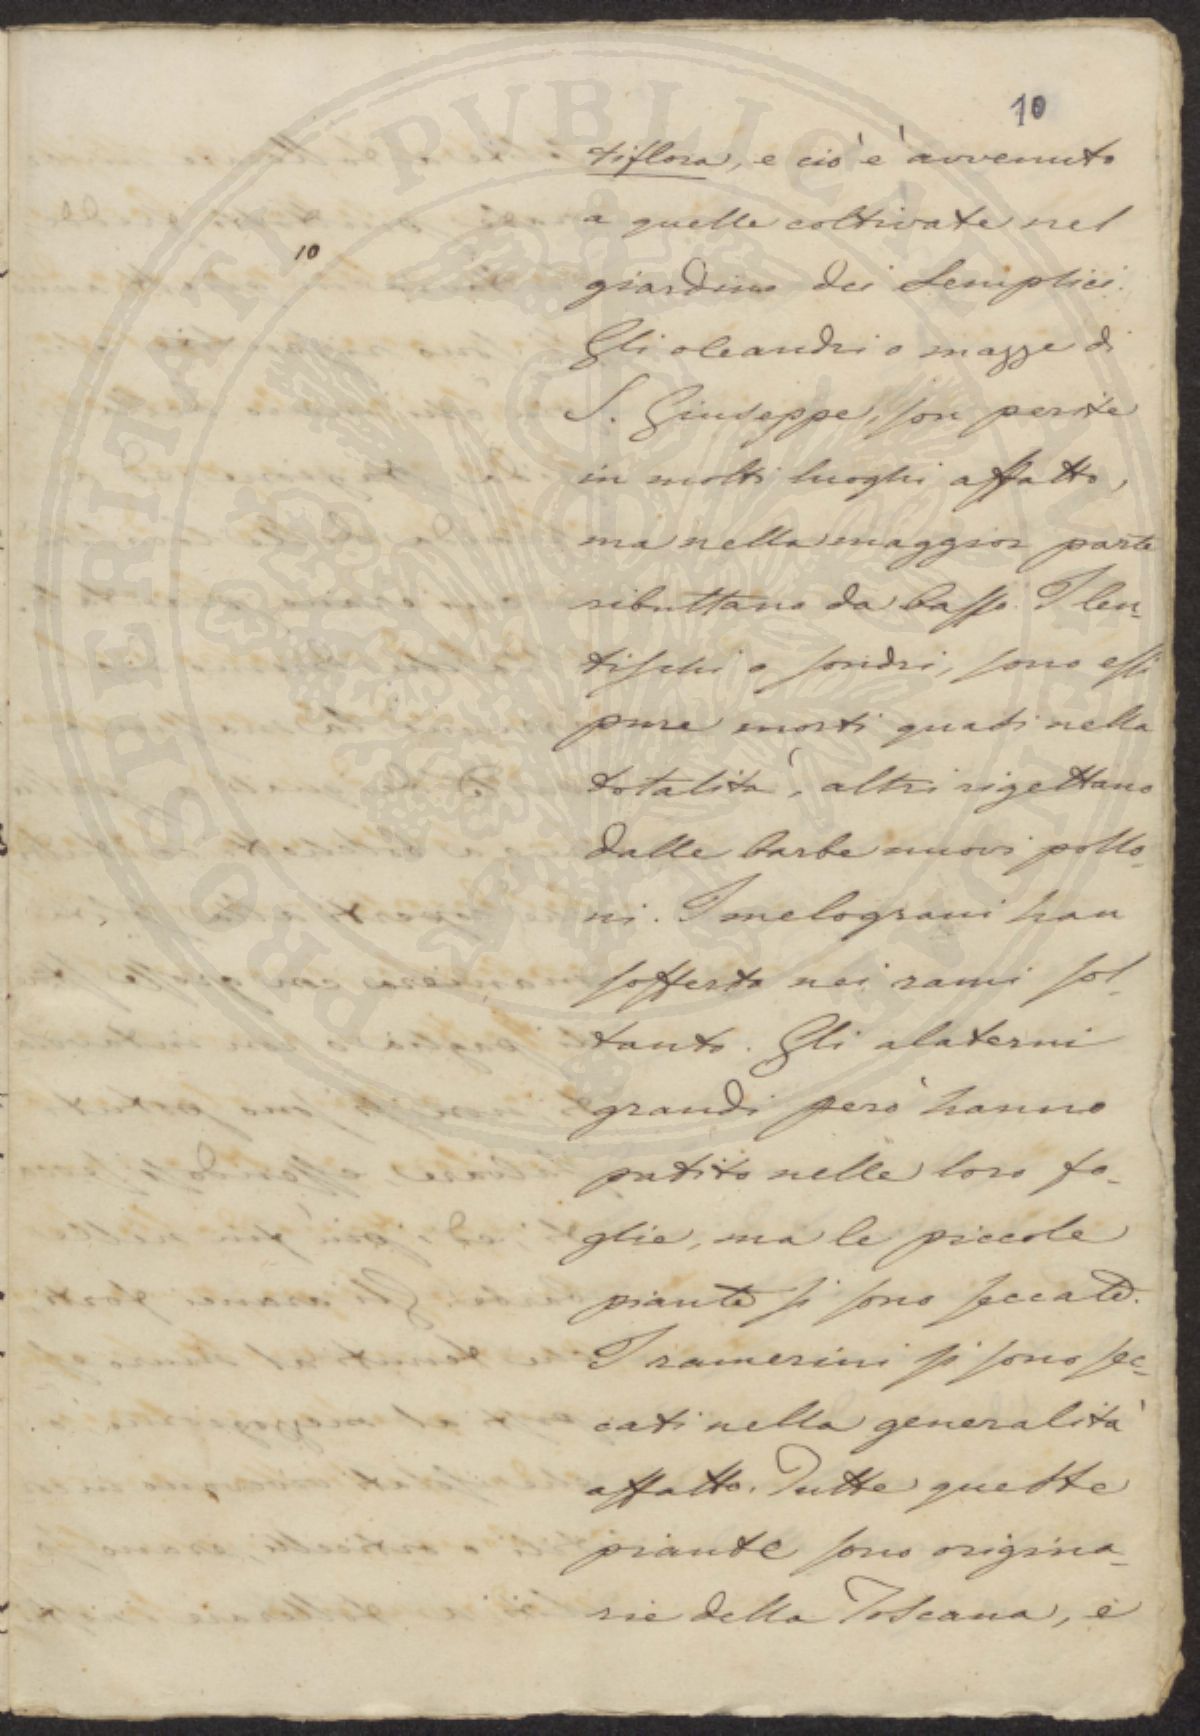 10
tiflora, e ciò è avvenuto
a quelle coltivate nel
10
giardino dei Semplici.
Gli oleandri o mazze di
S. Giuseppe, son perite
in molti luoghi affatto,
ma nella maggior parte
ributtano da basso. I len-
tischi o sondri, sono essi
pure morti quasi nella
totalità, altri rigettano
dalle barbe nuovi pollo-
ni. I melograni han
sofferto nei rami sol-
tanto. Gli alaterni
grandi però hanno
patito nelle loro fo-
glie, ma le piccole
piante si sono seccate.
I ramerini si sono sec-
cati nella generalità
affatto. Tutte queste
piante sono origina-
rie della Toscana, e
PROSPERITATI PUBLICAE